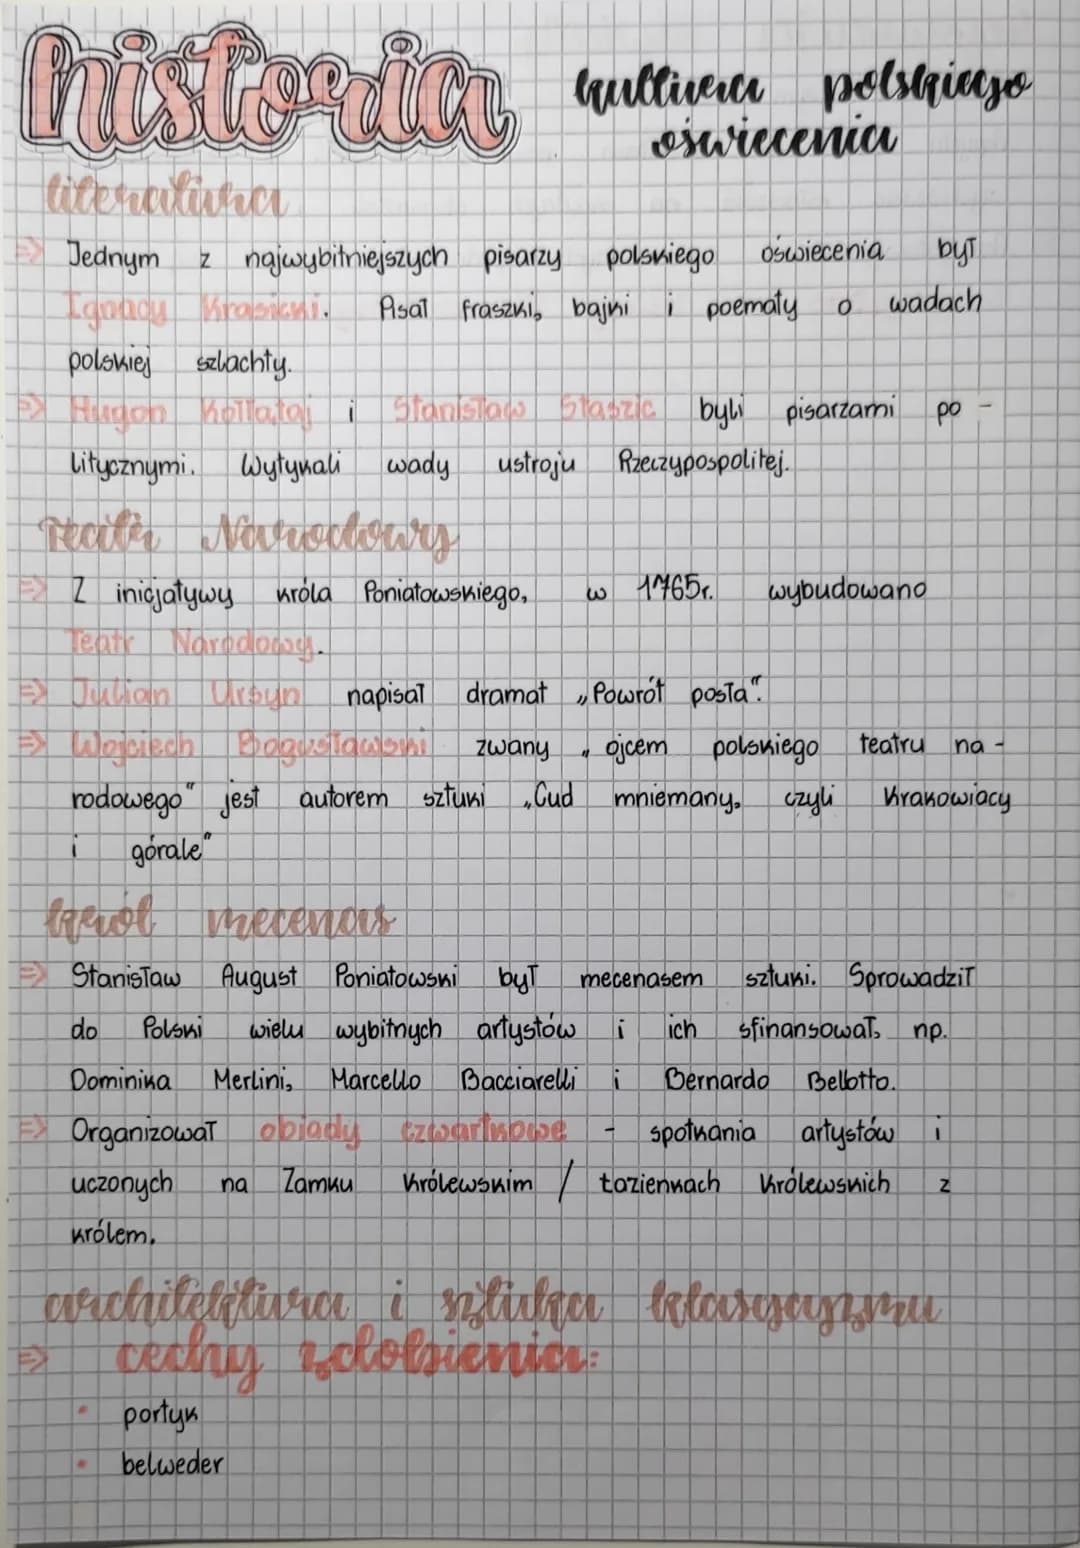 historia
kultura polskiego
oświecenia
literatura
=> Jednym z najwybitniejszych pisarzy polskiego oświecenia był
Ignacy Krasicki. Pisał fraszki, bajki i poematy o wadach
polskiej szlachty.
=> Hugon Kołłątaj i Stanisław Staszic byli pisarzami po -
litycznymi. Wytykali wady ustroju Rzeczypospolitej.
Teatr Narodowy
=> Z inicjatywy króla Poniatowskiego, w 1765r. wybudowano
Teatr Narodowy.
=> Julian Ursyn napisał dramat „Powrót posła".
=> Wojciech Bogusławski zwany „ojcem polskiego teatru na -
rodowego" jest autorem sztuki „Cud mniemany, czyli Krakowiacy
i górale"
król mecenas
=> Stanisław August Poniatowski był mecenasem sztuki. Sprowadził
do Polski wielu wybitnych artystów i ich sfinansował, np.
Dominika Merlini, Marcello Bacciarelli i Bernardo Bellotto.
=> Organizował obiady czwartkowe - spotkania artystów i
uczonych na Zamku Królewskim / Łazienkach Królewskich z
królem.
architektura i sztuka klasycyzmu
=> cechy zdobienia:
• portyk
• belweder